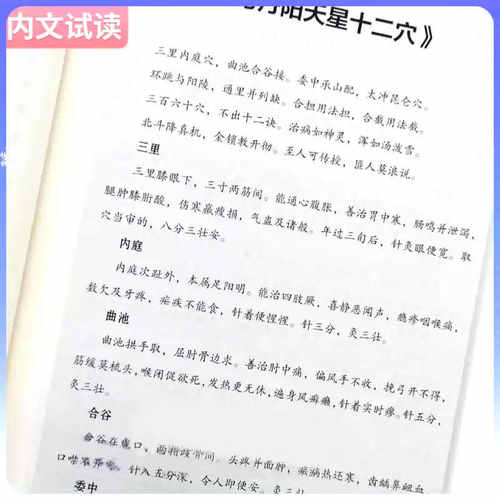 内文试读
丹阳天星十二穴》
三里内庭穴，曲池合谷接。委中承山配，太冲昆仑穴。
环跳与阳陵，通里并列缺。合担用法担，合截用法截。
三百六十穴，不出十二诀。治病如神灵，浑如汤泼雪。
北斗降真机，金锁教开彻。至人可传授，匪人莫浪说。
三里
三里膝眼下，三寸两筋间。能通心腹胀，善治胃中寒，肠鸣并泄泻，
腿肿膝胻酸，伤寒羸瘦损，气蛊及诸般。年过三旬后，针灸眼便宽。取
穴当审的，八分三壮安。
内庭
内庭次趾外，本属足阳明。能治四肢厥，喜静恶闻声，瘾疹咽喉痛，
数欠及牙疼，疟疾不能食，针着便惺惺。针三分，灸三壮。
曲池
曲池拱手取，屈肘骨边求。善治肘中痛，偏风手不收，挽弓开不得，
筋缓莫梳头，喉闭促欲死，发热更无休，遍身风癣癞，针着实时瘳。针五分，
灸三壮。
合谷
合谷在虎口，两指歧骨间。头疼并面肿，疟病热还寒，齿龋鼻衄血
口噤不开言。针入五分深，令人即便安。灸三壮。
委中